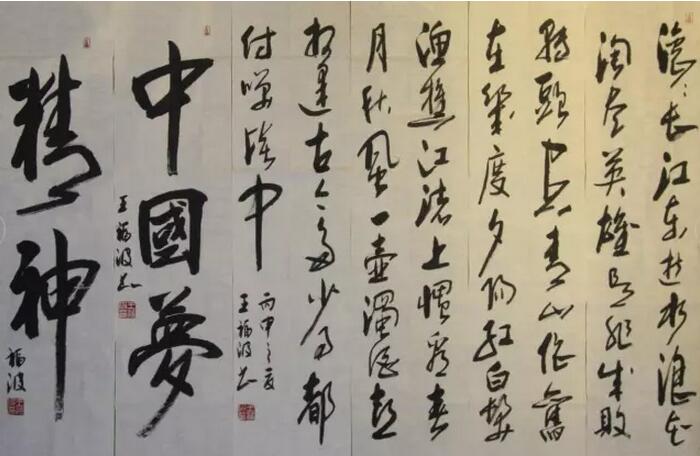 滚〻长江东逝水浪花
淘尽英雄是非成败
转頭空青山依舊
在幾度夕阳红白髮
渔樵江渚上惯看春
月秋風一壶濁酒喜
相逢古今多少事都
付笑谈中
丙申之夏
王福波书
中國夢
王福波书
精神
福波